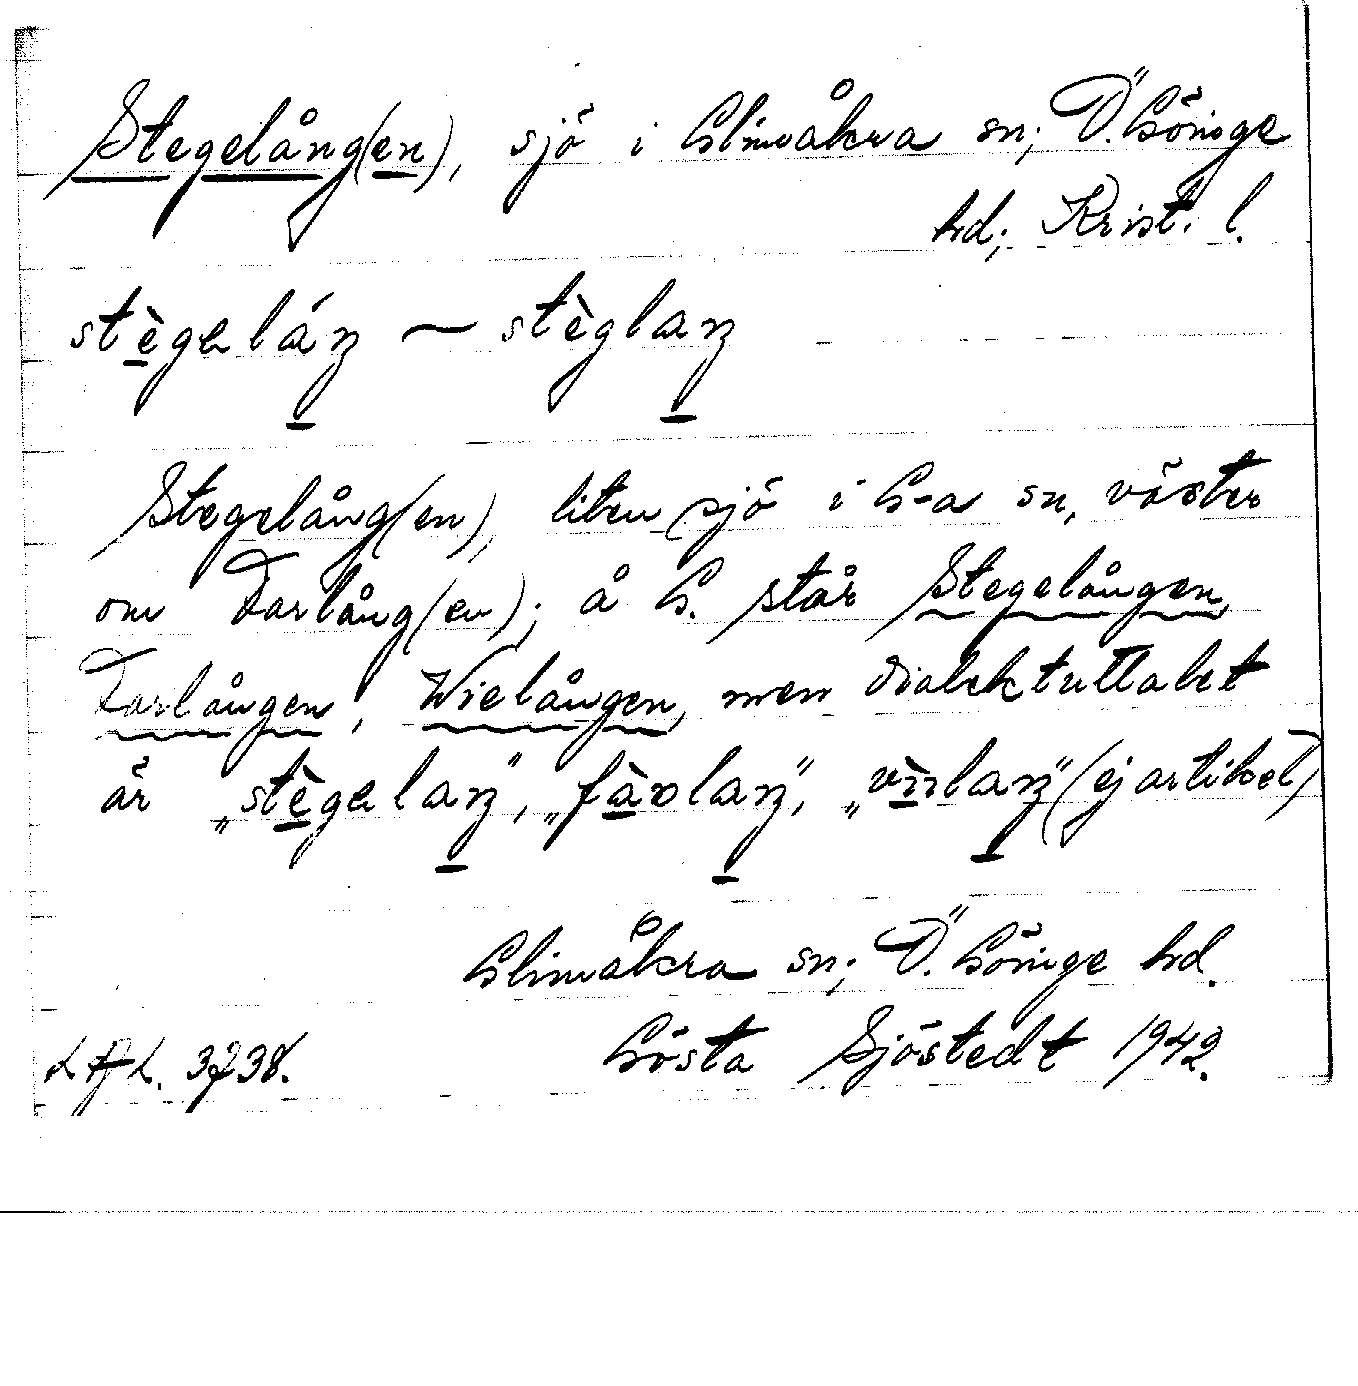 Stegelång(en), sjö i Glimåkra sn; Ö. Göinge
hd; Krist. l.
stègeláŋ ~ stèglaŋ
Stegelång(en), liten sjö i G-a sn, väster
om Farlång(en); å G. står Stegelången,
Farlången, Wielången, men dialektuttalet
är „stègelaŋ", „fàrlaŋ", „vìlaŋ" (ej artikel)
Glimåkra sn; Ö. Göinge hd.
LAL. 3738. Gösta Sjöstedt 1942.